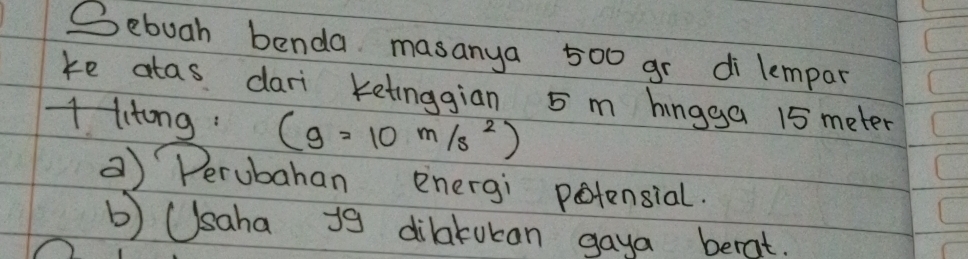 Sebuah benda masanya 500 gr di lempar
ke atas dari ketinggian 5 m hingga 15 meter
Hitung : (g = 10 m/s²)
a) Perubahan energi potensial.
b) Usaha yg dilakukan gaya berat.